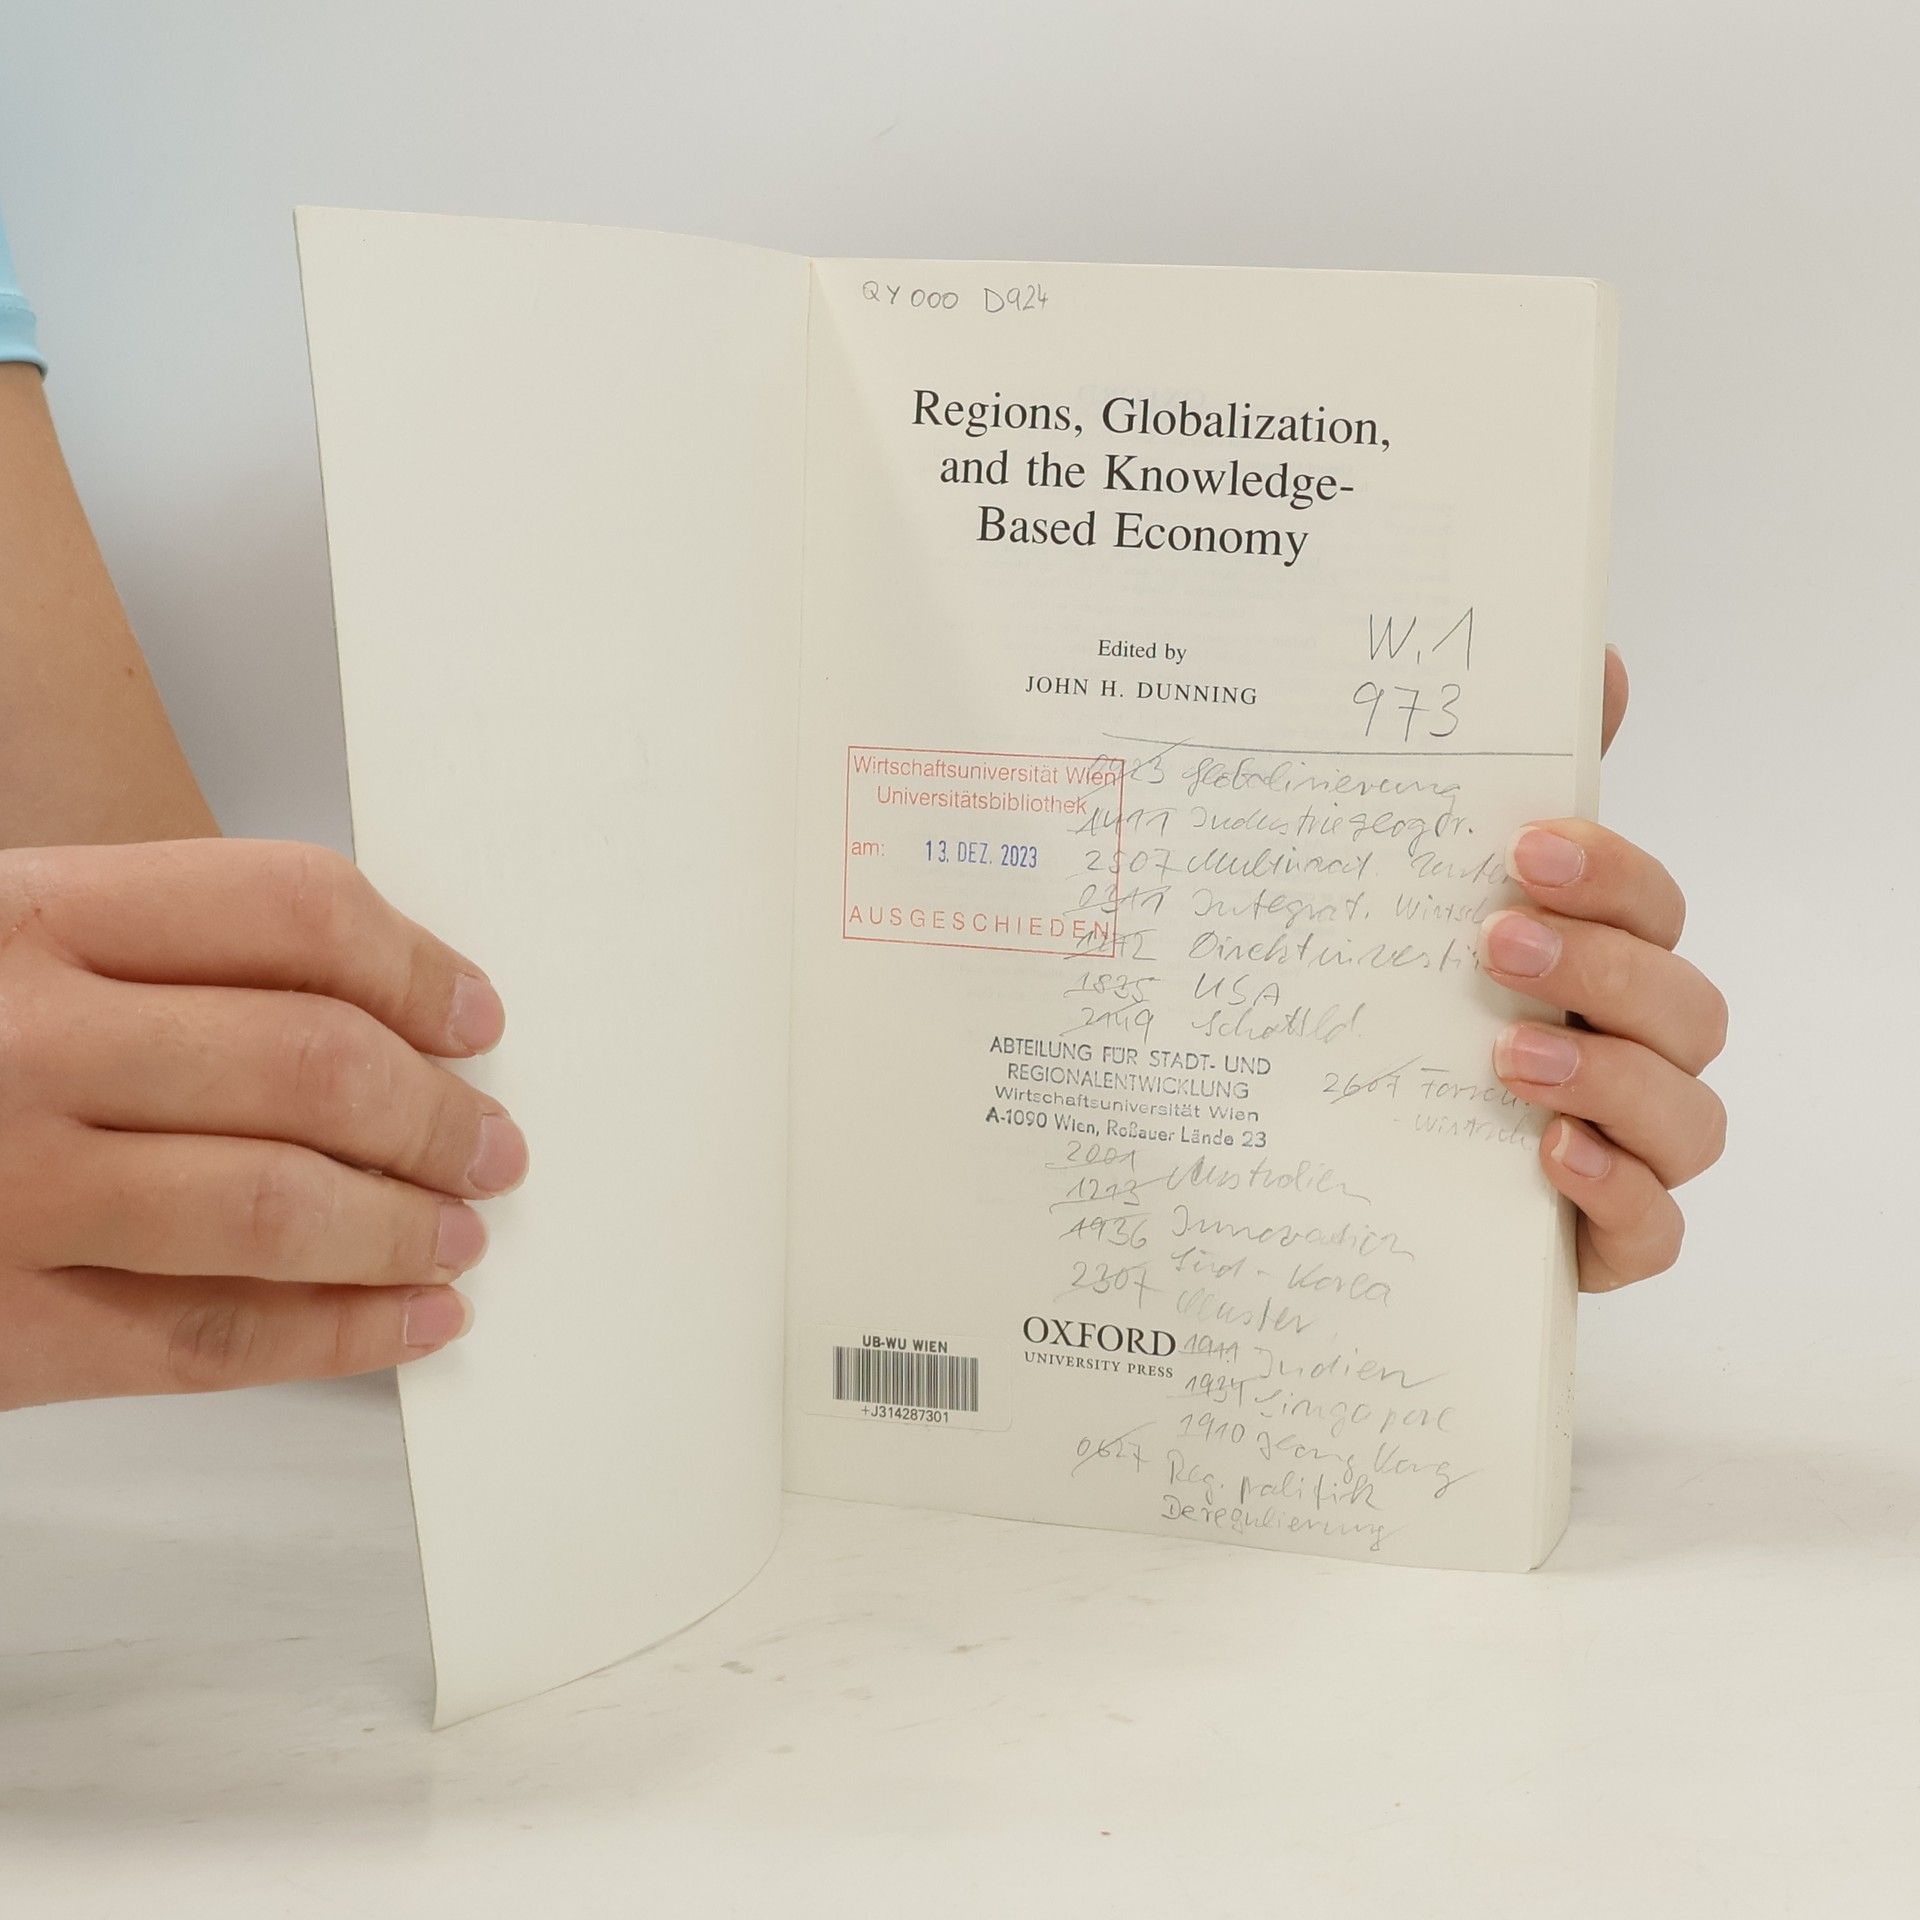 QY 000 D924
Regions, Globalization,
and the Knowledge-
Based Economy
Edited by
JOHN H. DUNNING
W.1
973
Wirtschaftsuniversität Wien
Universitätsbibliothek
am: 13. DEZ. 2023
AUSGESCHIEDEN
Globalisierung
1411 Industriegeogr.
2507 Multinat.
0311 Integrat. Wirtsch
1272 Direktinvesti
1835 USA
2149 Schottld.
ABTEILUNG FÜR STADT- UND
REGIONALENTWICKLUNG
Wirtschaftsuniversität Wien
A-1090 Wien, Roßauer Lände 23
2607 Forsch.
- Wirtsch
2001
1213 Australien
1936 Innovation
Süd - Korea
2307 Muster
OXFORD
UNIVERSITY PRESS
1911 Indien
1934 Singapore
1910 Hong Kong
0627 Reg. politik
Deregulierung
UB-WU WIEN
+J314287301